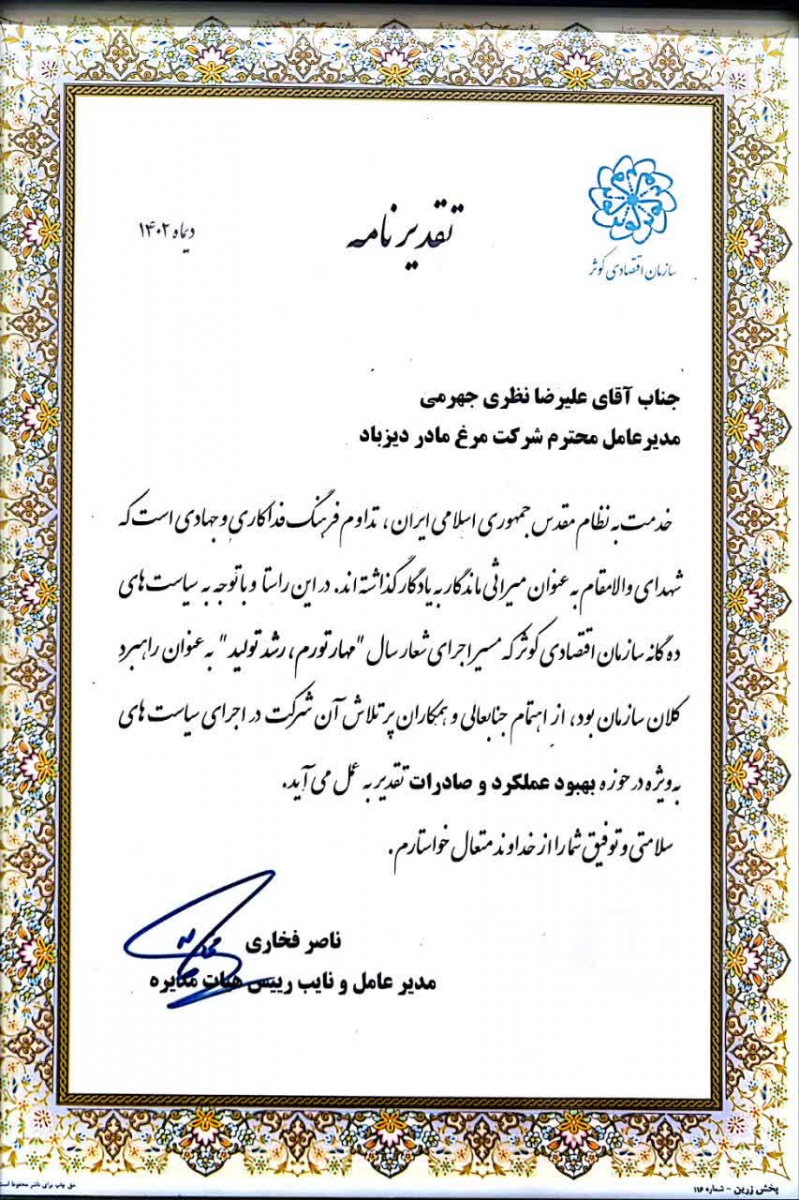 سازمان اقتصادی کوثر
تقدیرنامه
دیماه ۱۴۰۲
جناب آقای علیرضا نظری جهرمی
مدیرعامل محترم شرکت مرغ مادر دیزباد
خدمت به نظام مقدس جمهوری اسلامی ایران، تداوم فرهنگ فداکاری و جهادی است که
شهدای والامقام به عنوان میراثی ماندگار به یادگار گذاشته اند. در این راستا و با توجه به سیاست های
ده گانه سازمان اقتصادی کوثر که مسیر اجرای شعار سال "مهار تورم، رشد تولید" به عنوان راهبرد
کلان سازمان بود، از اهتمام جنابعالی و همکاران پر تلاش آن شرکت در اجرای سیاست های
به ویژه در حوزه بهبود عملکرد و صادرات تقدیر به عمل می آید.
سلامتی و توفیق شما را از خداوند متعال خواستارم.
ناصر فخاری
مدیر عامل و نایب رییس هیات مدیره
پخش زرین - شماره ۱۱۶
حق چاپ برای ناشر محفوظ است